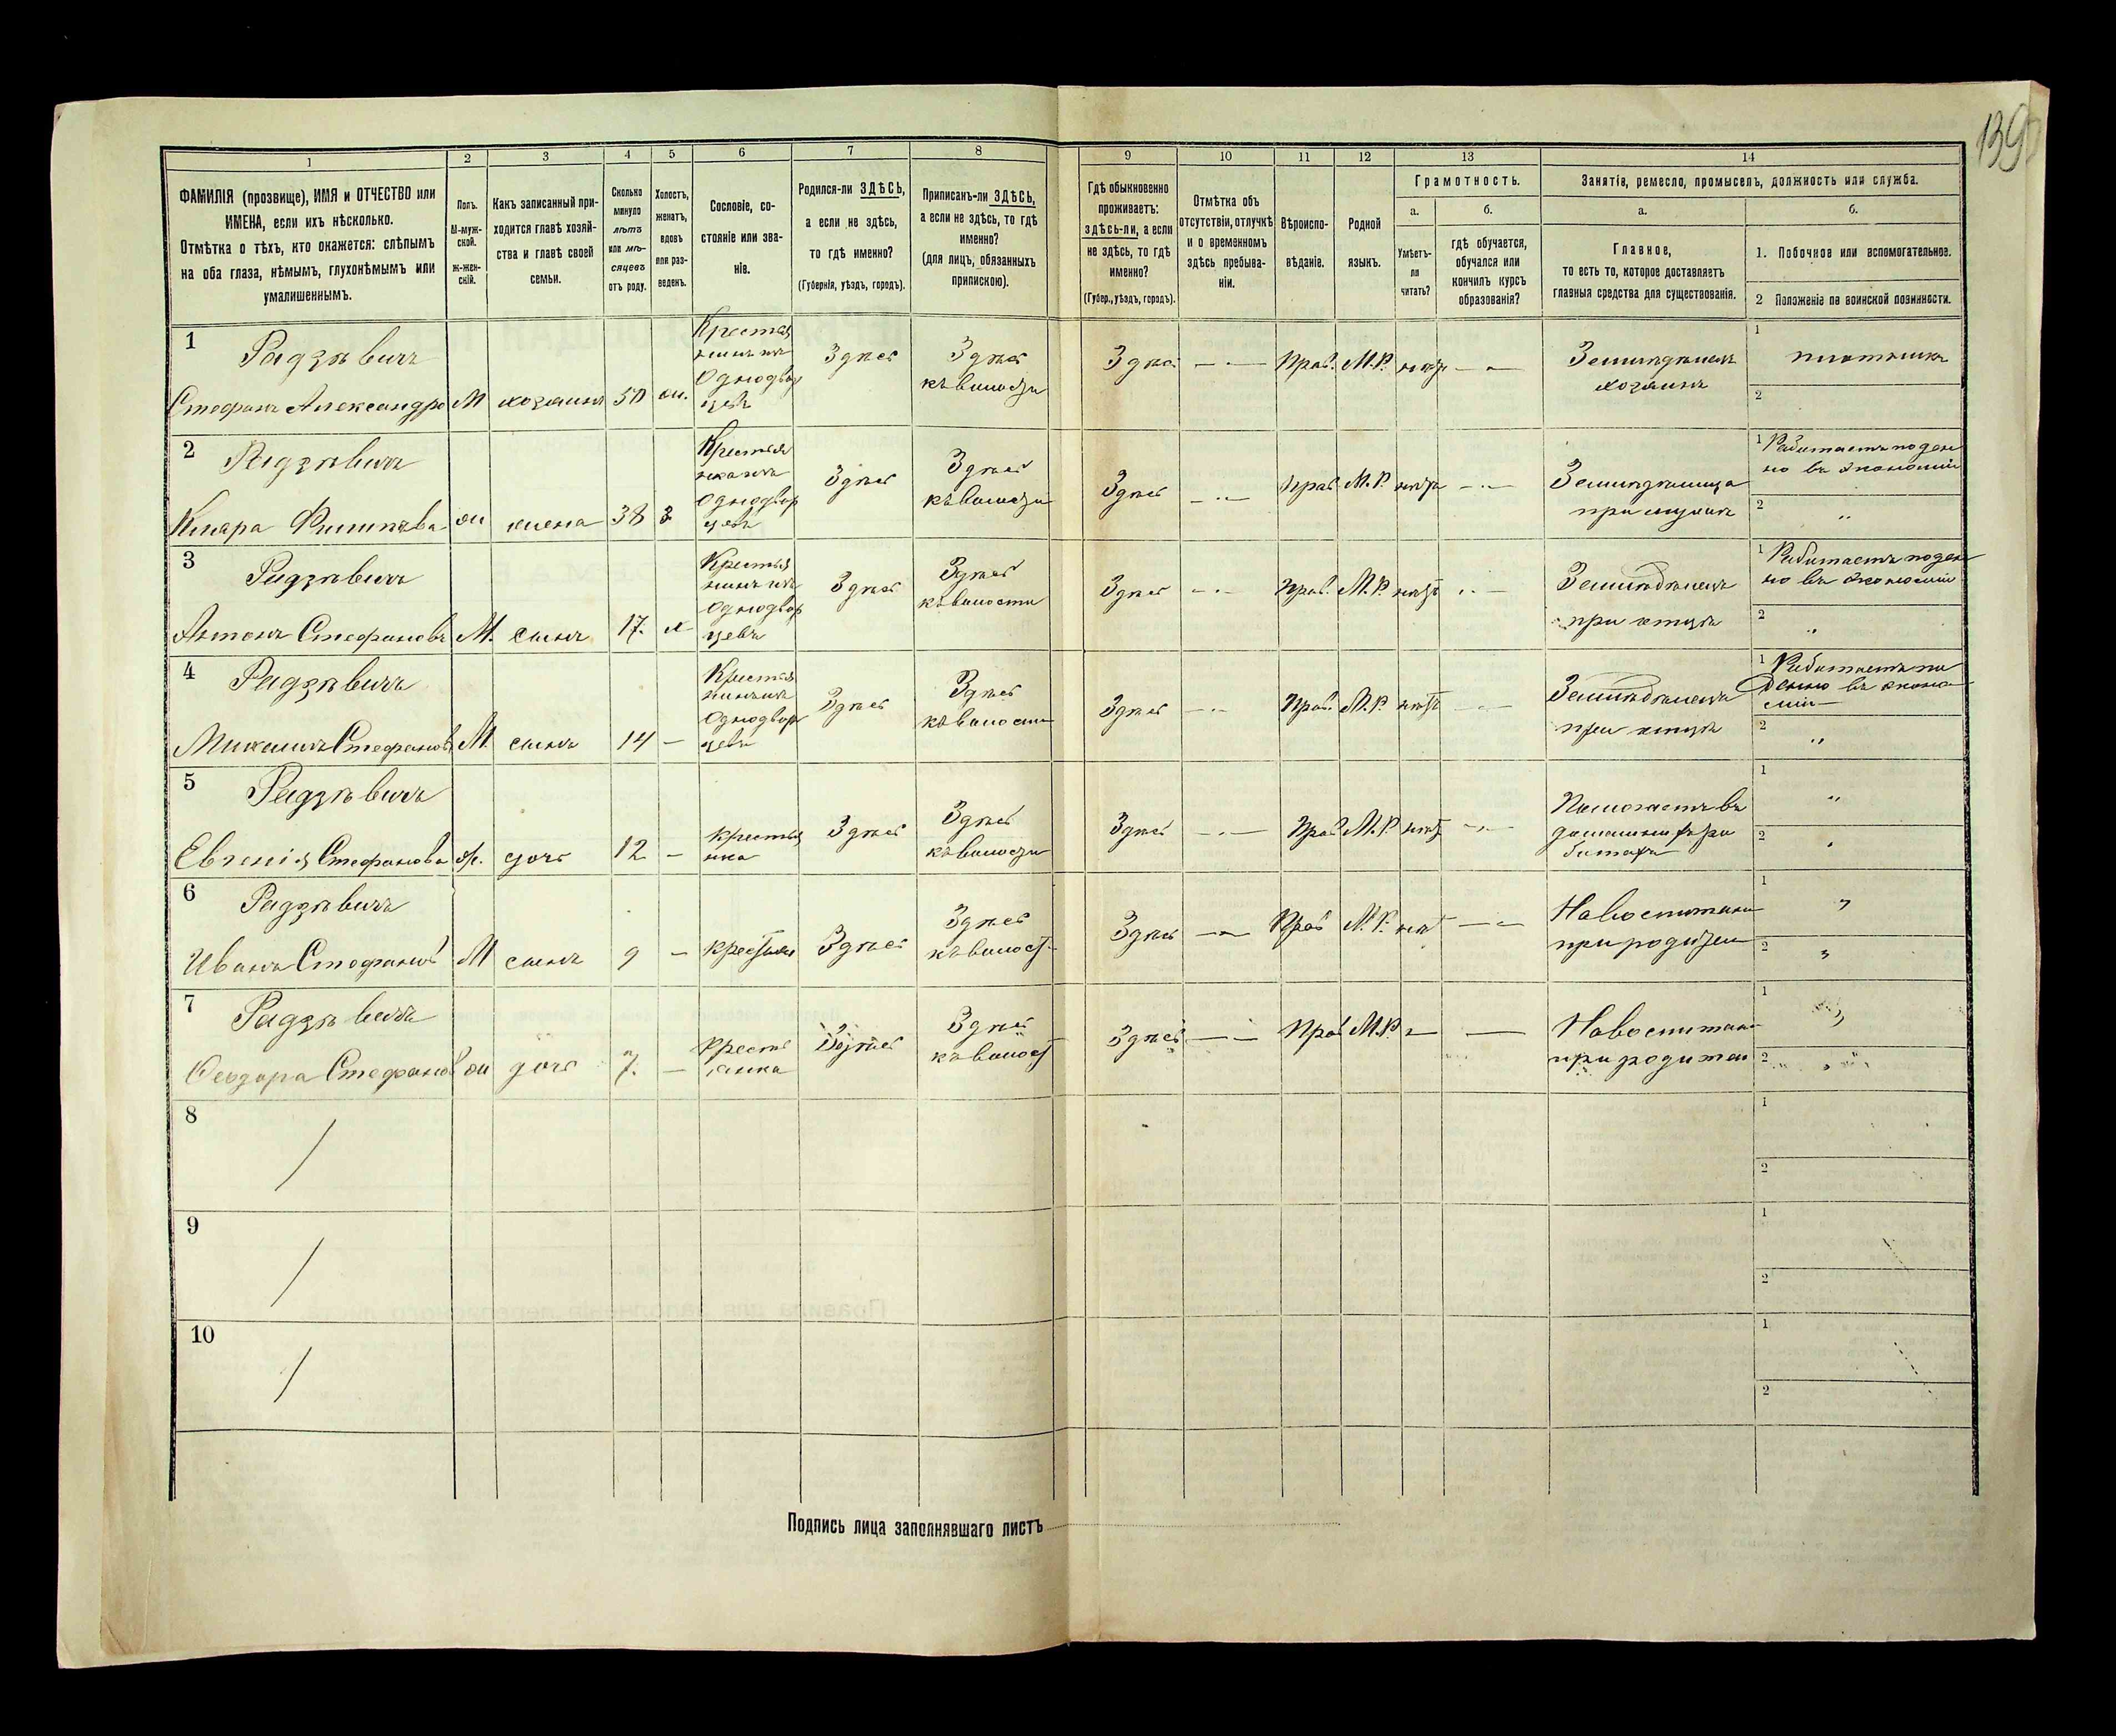 139
1 2 3 4 5 6 7 8 9 10 11 12 13 14
ФАМИЛІЯ (прозвище), ИМЯ и ОТЧЕСТВО или
ИМЕНА, если ихъ нѣсколько.
Отмѣтка о тѣхъ, кто окажется: слѣпымъ
на оба глаза, нѣмымъ, глухонѣмымъ или
умалишеннымъ.
Полъ.
М-муж-
ской.
Ж-жен-
скій.
Какъ записанный при-
ходится главѣ хозяй-
ства и главѣ своей
семьи.
Сколько
минуло
лѣтъ
или мѣ-
сяцевъ
отъ роду.
Холостъ,
женатъ,
вдовъ
или раз-
веденъ.
Сословіе, со-
стояніе или зва-
ніе.
Родился-ли ЗДѢСЬ,
а если не здѣсь,
то гдѣ именно?
(Губернія, уѣздъ, городъ).
Приписанъ-ли ЗДѢСЬ,
а если не здѣсь, то гдѣ
именно?
(для лицъ, обязанныхъ
припискою).
Гдѣ обыкновенно
проживаетъ:
здѣсь-ли, а если
не здѣсь, то гдѣ
именно?
(Губер., уѣздъ, городъ).
Отмѣтка объ
отсутствіи, отлучкѣ
и о временномъ
здѣсь пребыва-
ніи.
Вѣроиспо-
вѣданіе.
Родной
языкъ.
Грамотность.
а.
Умѣетъ-
ли
читать?
б.
гдѣ обучается,
обучался или
кончилъ курсъ
образованія?
Занятія, ремесло, промыселъ, должность или служба.
а.
Главное,
то есть то, которое доставляетъ
главныя средства для существованія.
б.
1. Побочное или вспомогательное.
2 Положеніе по воинской повинности.
1 Радзѣвичъ
Стефанъ Александро М хозяинъ 50 ж.
Крестья
нинъ изъ
Однодвор
цевъ
Здѣсь
Здѣсь
къ волости
Здѣсь — Прав. М.Р. нѣтъ —
Земледѣлецъ
хозяинъ
1 плотникъ
2
2 Радзѣвичъ
Клара Филипова ж жена 38 з
Крестья
нка изъ
Однодвор
цевъ
Здѣсь
Здѣсь
къ волости
Здѣсь — Прав М.Р. нѣтъ —
Земледѣлица
при мужѣ
1 Работаетъ поден
но въ экономіи
2 "
3 Радзѣвичъ
Антонъ Стефановъ М. сынъ 17. х
Крестья
нинъ изъ
Однодвор
цевъ
Здѣсь
Здѣсь
къ волости
Здѣсь — Прав. М.Р. нѣтъ —
Земледѣлецъ
при отцѣ
1 Работаетъ поден
но въ экономіи
2 "
4 Радзѣвичъ
Михаилъ Стефановъ М. сынъ 14 —
Крестья
нинъ изъ
Однодвор
цевъ
Здѣсь
Здѣсь
къ волости
Здѣсь — Прав. М.Р. нѣтъ —
Земледѣлецъ
при отцѣ
1 Работаетъ по
денно въ эконо
міи
2 "
5 Радзѣвичъ
Евгенія Стефанова ж. дочь 12 —
крестья
нка
Здѣсь
Здѣсь
къ волости
Здѣсь — Прав М.Р. нѣтъ —
Помогаетъ въ
домашнихъ ра
ботахъ
1 "
2 "
6 Радзѣвичъ
Иванъ Стефановъ М сынъ 9 — крестьян
Здѣсь
Здѣсь
къ волост
Здѣсь — Прав М.Р. нѣт —
На воспитани
при родител
1 "
2 "
7 Радзѣвичъ
Феодора Стефанов ж дочь 7. —
крест
янка
Здѣсь
Здѣсь
къ волост
Здѣсь — Прав М.Р. — —
На воспитан
при родител
1 "
2 "
8 /
1
2
9 /
1
2
10 /
1
2
Подпись лица заполнявшаго листъ